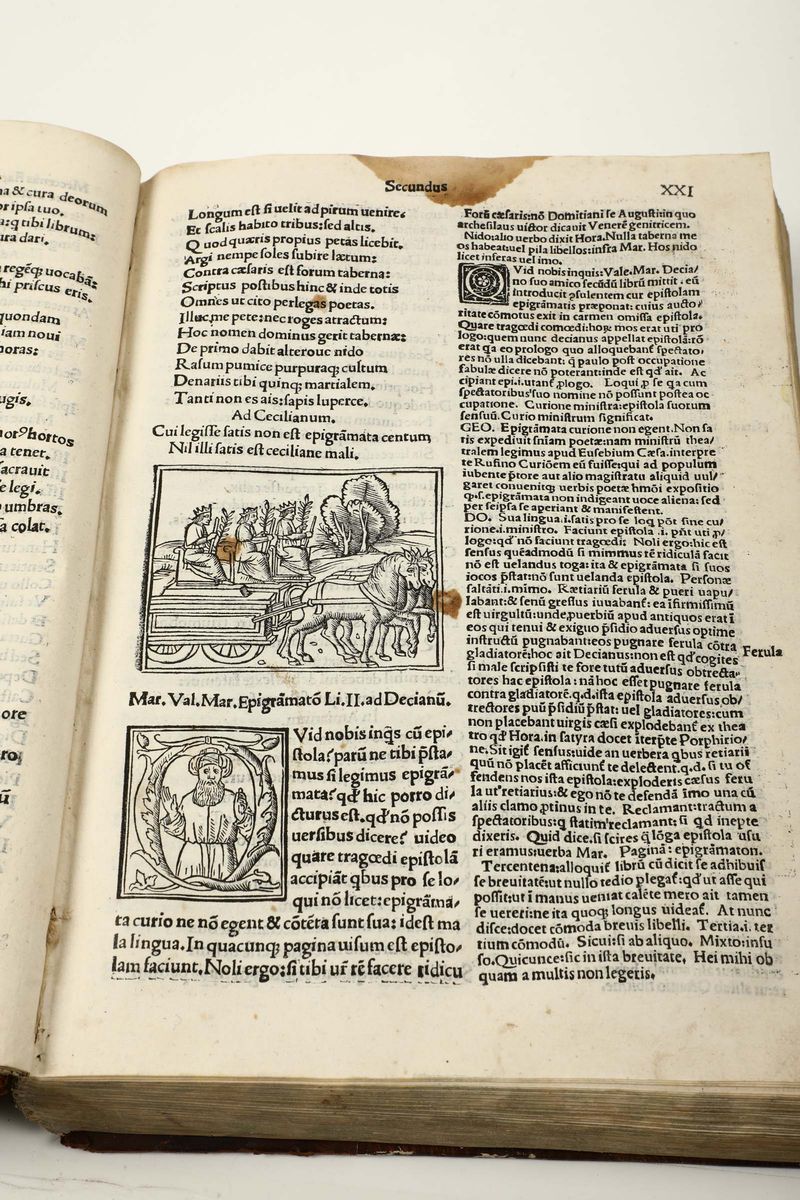 na & cura deorum
or ipsa tuo.
a:q tibi librum:
ura dari.
regẽq; uocabã:
hi priscus eris.
quondam
iam noui
noras:
ugis.
hortos
a tener.
acrauit
e legi.
umbras.
a colat.
ore
Secundus
XXI
Longum est si uelit ad pirum uenire:
Et scalis habito tribus: sed altis.
Quod quæris propius petas licebit.
Argi nempe soles subire lætum:
Contra cæsaris est forum taberna:
Scriptus postibus hinc & inde totis
Omnes ut cito perlegas poetas.
Illuc me pete: nec roges atractum:
Hoc nomen dominus gerit tabernæ:
De primo dabit alteroue nido
Rasum pumice purpuraq; cultum
Denariis tibi quinq; martialem.
Tanti non es ais: sapis luperce.
Ad Cecilianum.
Cui legisse satis non est epigrãmata centum
Nil illi satis est ceciliane mali.
Mar. Val. Mar. Epigrãmatõ Li. II. ad Decianũ.
Vid nobis inqs cũ epi/
stola? parũ ne tibi p̃sta/
mus si legimus epigrã/
mata? qđ hic porro di/
cturus est. qđ nõ possis
uersibus dicere? uideo
quare tragœdi epistolã
accipiãt qbus pro se lo/
qui nõ licet: epigrãma/
ta curio ne nõ egent & cõtẽta sunt sua: idest ma
la lingua. In quacunq; pagina uisum est episto/
lam faciunt. Noli ergo: si tibi ur̃ rẽ facere ridicu
Forũ cæsaris: nõ Domitiani se Augusti: in quo
archesilaus uictor dicauit Venerẽ genitricem.
Nido: alio uerbo dixit Hora. Nulla taberna me
os habeat: uel pila libellos: infra Mar. Hos nido
licet inseras uel imo.
Vid nobis inquis: Vale. Mar. Decia/
no suo amico secũdũ librũ mittit. eũ
introducit ꝯsulentem cur epistolam
epigrãmatis præponat: cuius aucto/
ritate cõmotus exit in carmen omissa epistola.
Quare tragœdi comœdi: hoꝝ mos erat uti pro
logo: quem nunc decianus appellat epistolã: rõ
erat qa eo prologo quo alloquebant̃ spectato,
res nõ ulla dicebant: q̃ paulo post occupatione
fabulæ dicere nõ poterant: inde est qđ ait. Ac
cipiant epi. i. utant̃ ꝓlogo. Loqui ꝓ se qa cum
spectatoribus suo nomine nõ possunt postea oc
cupatione. Curione ministra: epistola suorum
sensuũ. Curio ministrum significat.
GEO. Epigrãmata curione non egent. Non sa
tis expediuit sñiam poetæ: nam ministrũ thea/
tralem legimus apud Eusebium Cæsa. interpre
te Rufino Curiõem eũ fuisse: qui ad populum
iubente p̃tore aut alio magistratu aliquid uul/
garet conuenitq; uerbis poetæ hmõi expositio
q.s. epigrãmata non indigeant uoce aliena: sed
per seipsa se aperiant & manifestent.
DO. Sua lingua. i. satis pro se loq põt sine cu/
rione. i. ministro. Faciunt epistola .i. pñt uti ꝓ/
logo: qđ nõ faciunt tragœdi: Noli ergo: hic est
sensus quẽadmodũ si mimmus tẽ ridiculã facit
nõ est uelandus toga: ita & epigrãmata si suos
iocos p̃stat: nõ sunt uelanda epistola. Personæ
saltãti. i. mimo. Rætiariũ ferula & pueri uapu/
labant: & senũ gressus iuuabant̃: ea ĩfirmissimũ
est uirgultũ: unde ꝓuerbiũ apud antiquos erat ĩ
eos qui tenui & exiguo p̃sidio aduersus optime
instructũ pugnabant: eos pugnare ferula cõtra
gladiatorẽ: hoc ait Decianus: non est qđ cogites
si male scripsisti te fore tutũ aduersus obtrecta-
tores hac epistola: nã hoc esset pugnare ferula
contra gladiatorẽ. q.d. ista epistola aduersus ob/
trectores paruũ p̃sidiũ p̃stat: uel gladiatores: cum
non placebant uirgis cæsi explodebant̃ ex thea
tro qđ Hora. in satyra docet iterp̃te Porphirio/
ne. Sit igit̃ sensus: uide an uerbera qbus retiarii
quũ nõ placẽt afficiunt̃ te delectent. q.d. si tu of
fendens nos ista epistola: exploderis cæsus feru
la ut retiarius: & ego nõ te defendã imo una cũ
aliis clamo ꝓtinus in te. Reclamant: tractum a
spectatoribus: q statim reclamant: si qd inepte
dixeris. Quid dice. si scires q̃ lõga epistola usu
ri eramus: uerba Mar. Paginã: epigrãmaton.
Tercentena: alloquit̃ librũ cũ dicit se adhibuis
se breuitatẽ: ut nullo tedio ꝓlegat̃: qđ ut asse qui
possit: ut ĩ manus ueniat calẽte mero ait tamen
se uereri: ne ita quoq; longus uideat̃. At nunc
disce: docet cõmoda breuis libelli. Tertia. i. ter
tium cõmodũ. Sicui: si ab aliquo. Mixto: infu
so. Quicunce: sic in ista breuitate. Hei mihi ob
quam a multis non legeris.
Ferula